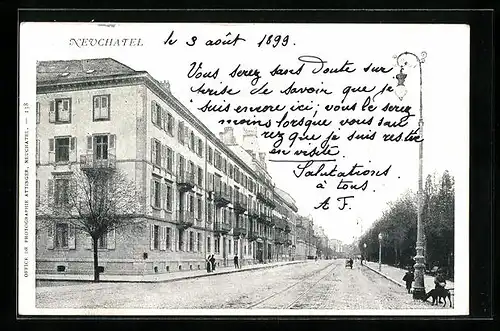 NEVCHATEL
le 3 août 1899.
Vous serez sans Doute sur
prise de savoir que je
suis encore ici; vous le serez
moins lorsque vous sau
rez que je suis restée
en visite.
Salutations
à tous.
A F.
OFFICE DE PHOTOGRAPHIE ATTINGER, NEUCHATEL. — 438